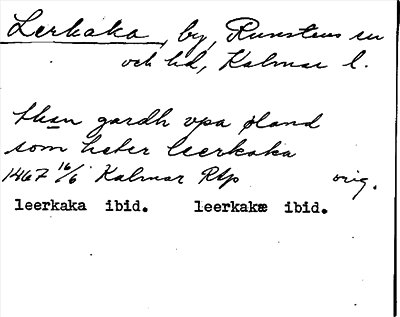 Lerkaka, by, Runstens sn
och hd, Kalmar l.
thæn gardh vpa øland
som heter leerkaka
1467 16/6 Kalmar Rtp orig.
leerkaka ibid. leerkakæ ibid.